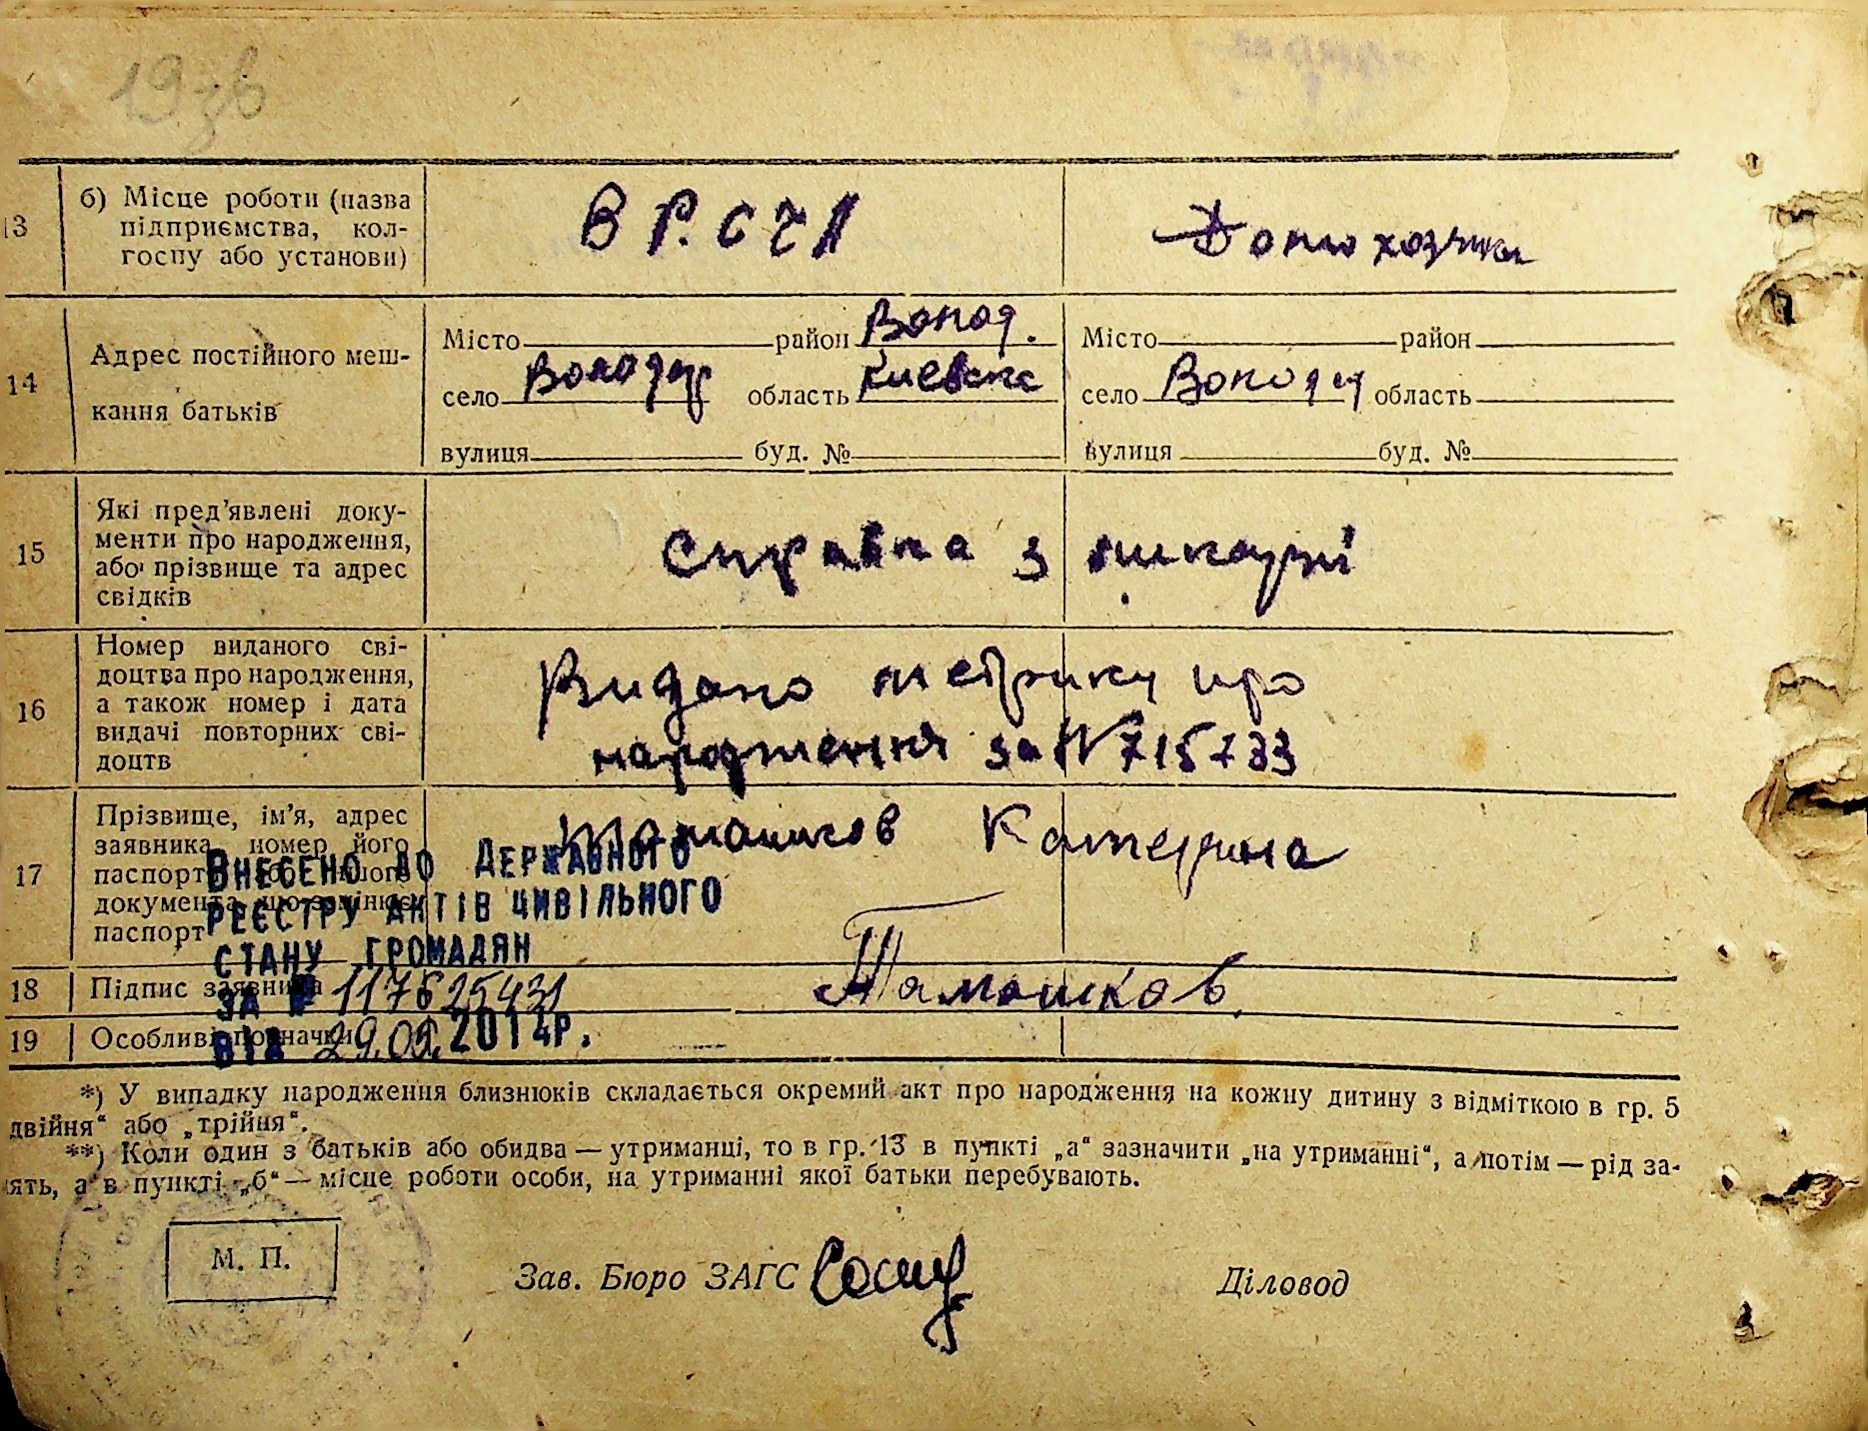 19зв
13
б) Місце роботи (назва
підприємства, кол-
госпу або установи)
В Р.
Домохозяйка
14
Адрес постійного меш-
кання батьків
Місто район Волод.
село Володар область Киевска
вулиця буд. №
Місто район
село Волода область
вулиця буд. №
15
Які пред'явлені доку-
менти про народження,
або прізвище та адрес
свідків
Справка з
16
Номер виданого сві-
доцтва про народження,
а також номер і дата
видачі повторних сві-
доцтв
Видано метрику про
народження за № 715733
17
Прізвище, ім'я, адрес
заявника, номер його
паспорт
документа, що замінює
паспорт
Катерина
Внесено до Державного
реєстру актів цивільного
стану громадян
за № 117625431
від 29.09.2014р.
18
Підпис заявника
Тамашков
19
Особливі позначки
*) У випадку народження близнюків складається окремий акт про народження на кожну дитину з відміткою в гр. 5
двійня“ або „трійня“.
**) Коли один з батьків або обидва — утриманці, то в гр. 13 в пункті „а“ зазначити „на утриманні“, а потім — рід за-
нять, а в пункті „б“ — місце роботи особи, на утриманні якої батьки перебувають.
М. П.
Зав. Бюро ЗАГС
Діловод